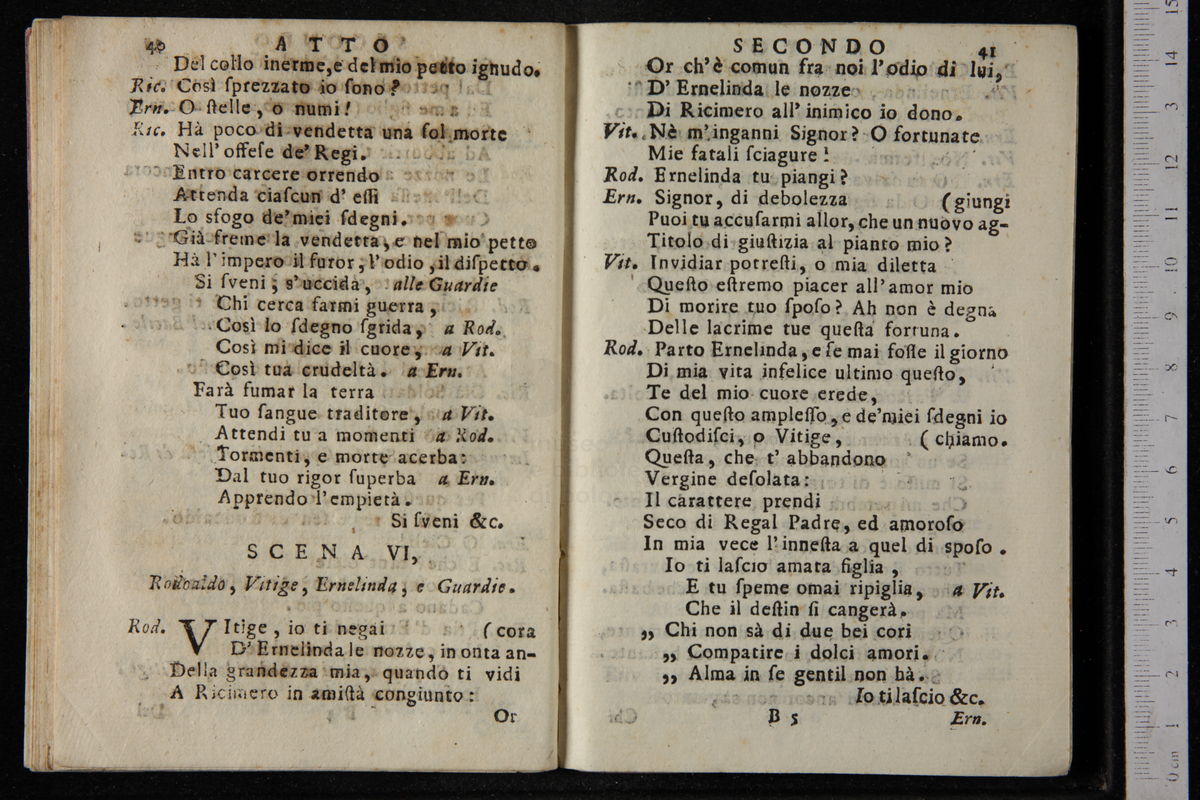 40 ATTO
Del collo inerme, e del mio petto ignudo.
Ric. Così ſprezzato io ſono?
Ern. O ſtelle, o numi!
Ric. Hà poco di vendetta una ſol morte
Nell' offeſe de' Regi.
Entro carcere orrendo
Attenda ciaſcun d' eſſi
Lo sfogo de' miei ſdegni.
Già freme la vendetta, e nel mio petto
Hà l' impero il furor, l' odio, il diſpetto.
Si ſveni, s' uccida, alle Guardie
Chi cerca farmi guerra,
Così lo ſdegno ſgrida, a Rod.
Così mi dice il cuore, a Vit.
Così tua crudeltà. a Ern.
Farà fumar la terra
Tuo ſangue traditore, a Vit.
Attendi tu a momenti a Rod.
Tormenti, e morte acerba:
Dal tuo rigor ſuperba a Ern.
Apprendo l' empietà.
Si ſveni &c.
SCENA VI,
Rodoaldo, Vitige, Ernelinda, e Guardie.
Rod. VItige, io ti negai (cora
D' Ernelinda le nozze, in onta an-
Della grandezza mia, quando ti vidi
A Ricimero in amiſtà congiunto:
Or
SECONDO 41
Or ch' è comun fra noi l' odio di lui,
D' Ernelinda le nozze
Di Ricimero all' inimico io dono.
Vit. Nè m' inganni Signor? O fortunate
Mie fatali ſciagure!
Rod. Ernelinda tu piangi?
Ern. Signor, di debolezza (giungi
Puoi tu accuſarmi allor, che un nuovo ag-
Titolo di giuſtizia al pianto mio?
Vit. Invidiar potreſti, o mia diletta
Queſto eſtremo piacer all' amor mio
Di morire tuo ſpoſo? Ah non è degna
Delle lacrime tue queſta fortuna.
Rod. Parto Ernelinda, e ſe mai foſſe il giorno
Di mia vita infelice ultimo queſto,
Te del mio cuore erede,
Con queſto ampleſſo, e de' miei ſdegni io
Cuſtodiſci, o Vitige, (chiamo.
Queſta, che t' abbandono
Vergine deſolata:
Il carattere prendi
Seco di Regal Padre, ed amoroſo
In mia vece l' inneſta a quel di spoſo.
Io ti laſcio amata figlia,
E tu ſpeme omai ripiglia, a Vit.
Che il deſtin ſi cangerà.
„ Chi non sà di due bei cori
„ Compatire i dolci amori.
„ Alma in ſe gentil non hà.
Io ti laſcio &c.
B 5 Ern.